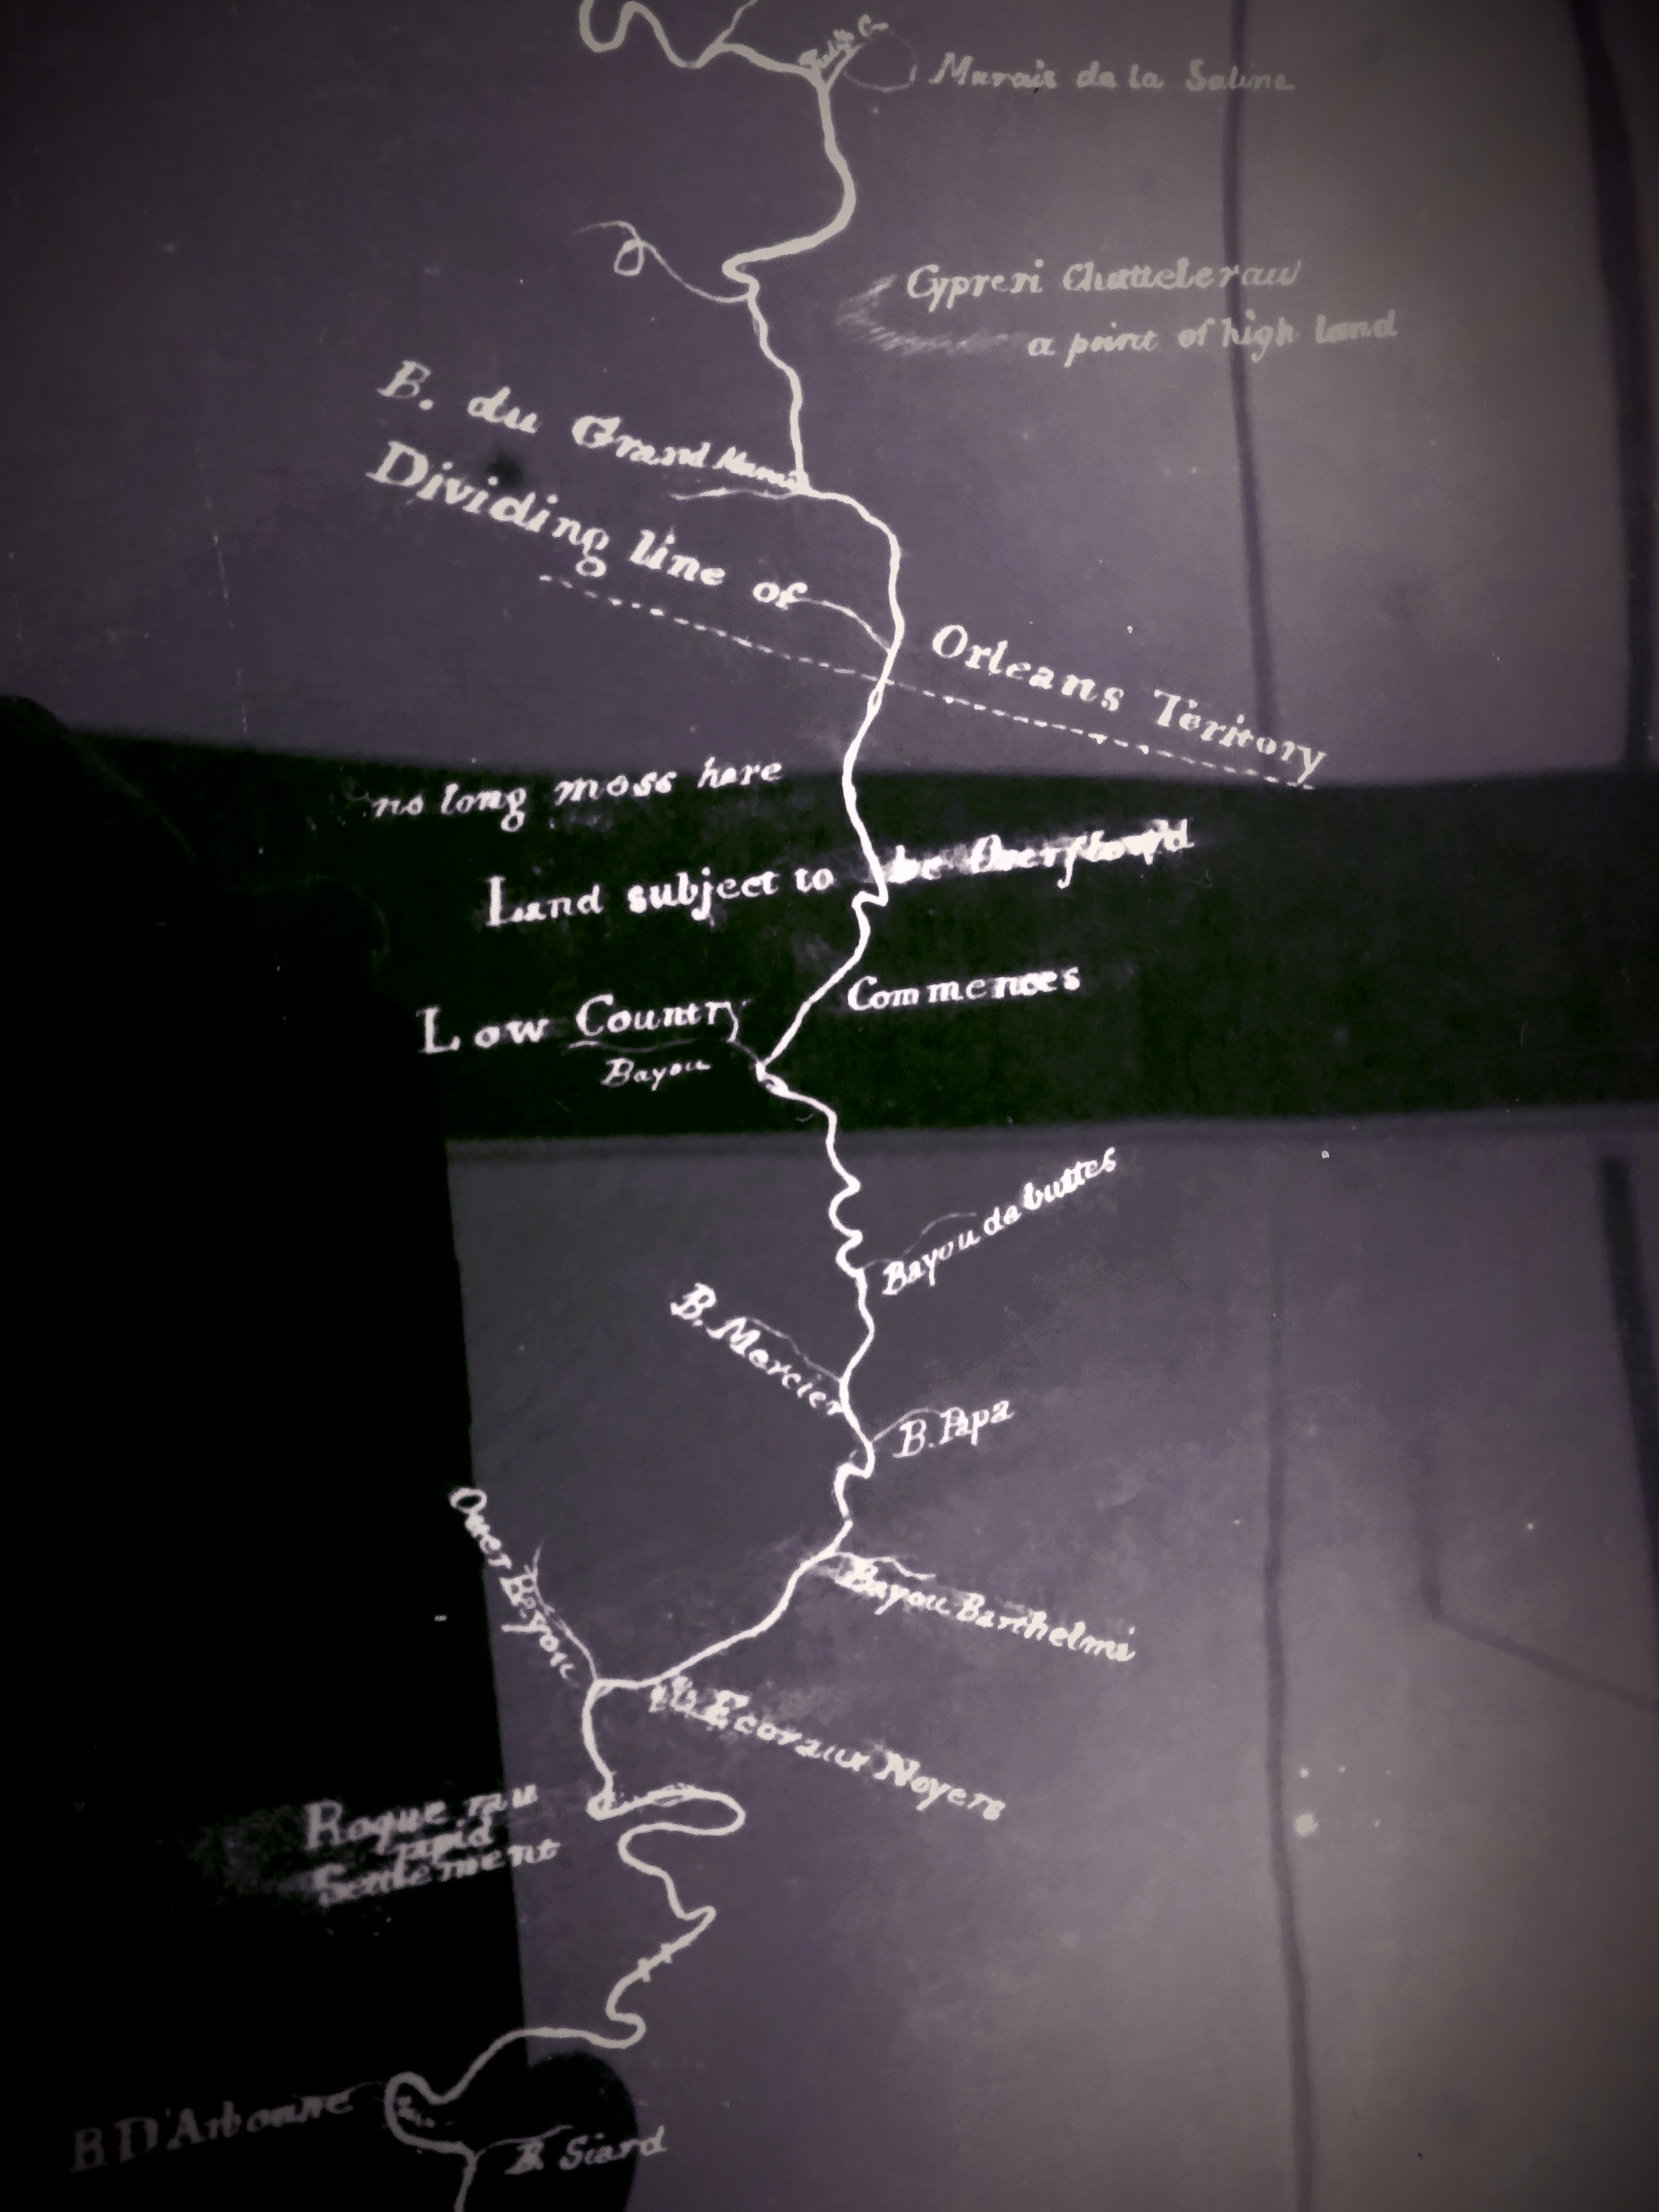 Marais de la Saline
Cypreri Chattelerau
a point of high land
B. du Grand Marais
Dividing line of
Orleans Teritory
no long moss here
Land subject to be Overflow'd
Low Country Commences
Bayou
Bayou de buttes
B. Mercier
B. Papa
Over Bayou
Bayou Barthelmi
Ecoraux Noyers
Roque rau
rapid
Settlement
B D'Arbonne
B. Siard